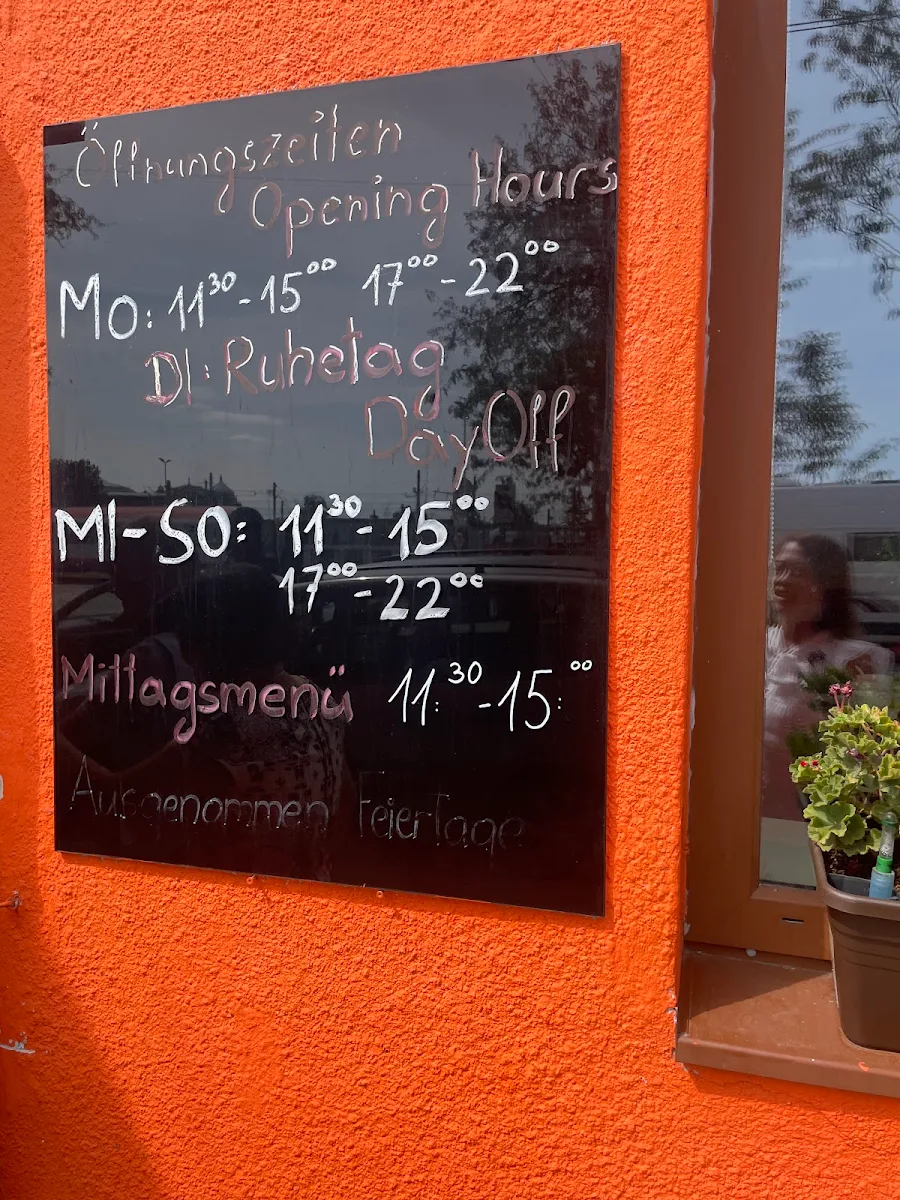 Öffnungszeiten
Opening Hours
Mo: 11³⁰-15⁰⁰ 17⁰⁰-22⁰⁰
DI: Ruhetag
Day Off
MI-SO: 11³⁰-15⁰⁰
17⁰⁰-22⁰⁰
Mittagsmenü 11:³⁰-15:⁰⁰
Ausgenommen FeierTage